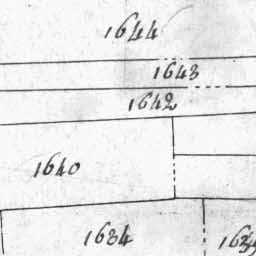 1644
1643
1642
1640
1634